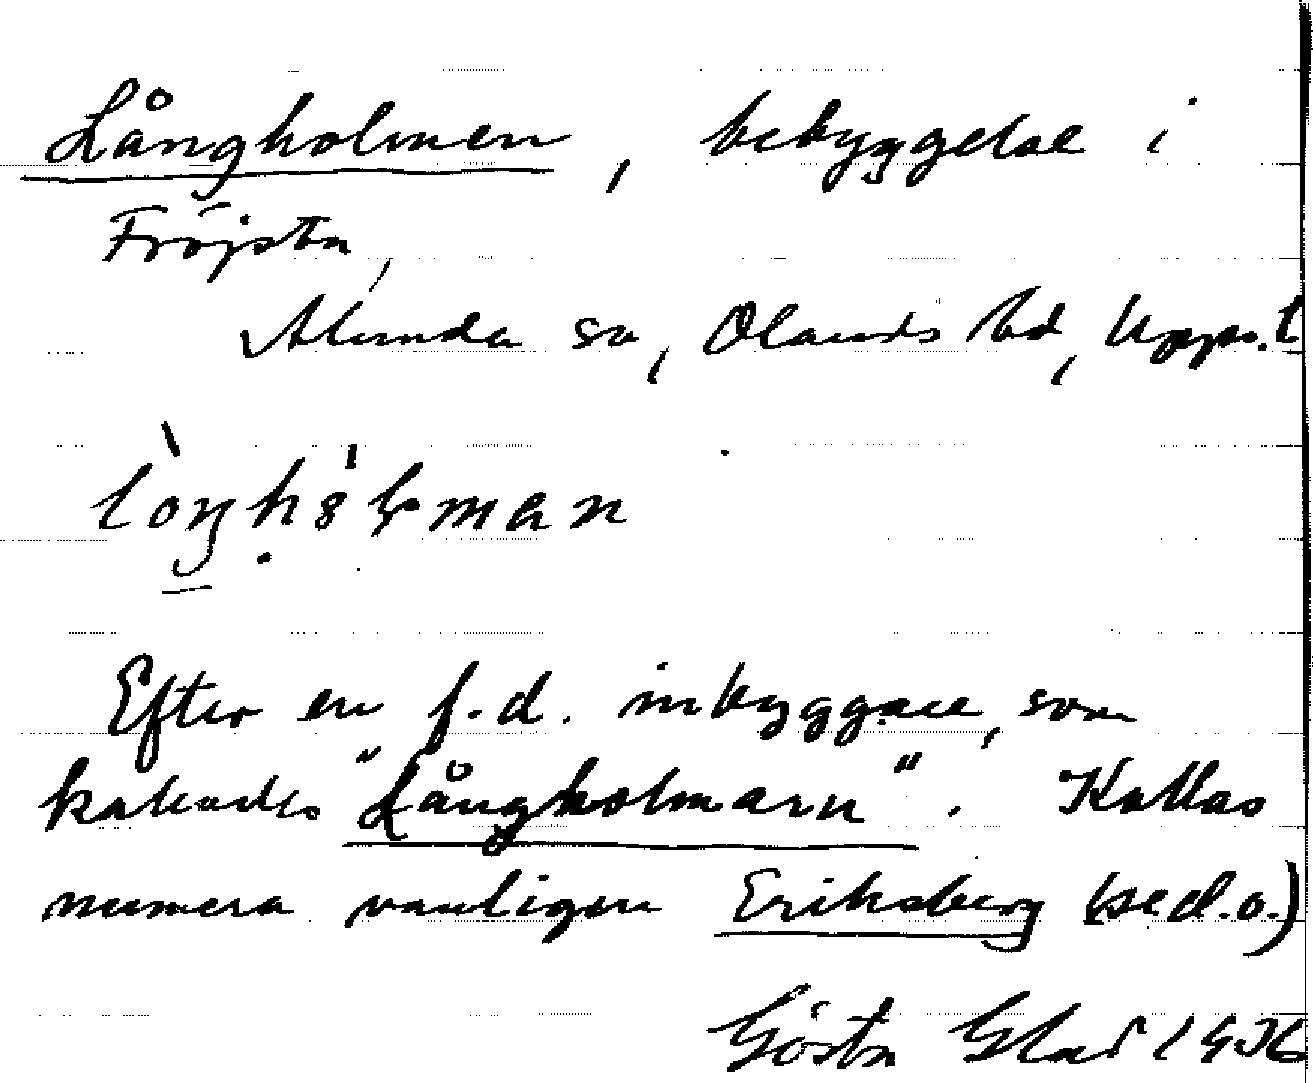 Långholmen, bebyggelse i
Fröjsta,
Alunda sn, Olands hd, Upps.l
Efter en f.d. inbyggare, som
kallades "Långholmarn". Kallas
numera vanligen Eriksberg (se d.o.)
Gösta Glad 1936